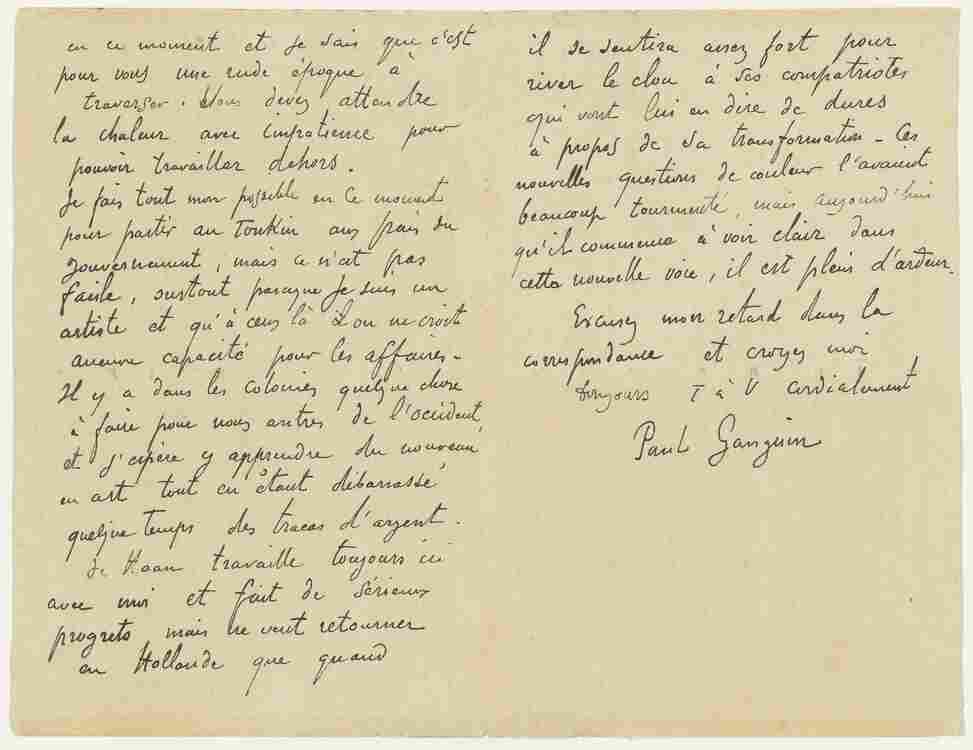 en ce moment et je sais que c'est
pour vous une rude époque à
traverser. Vous devez attendre
la chaleur avec impatience pour
pouvoir travailler dehors.
Je fais tout mon possible en ce moment
pour partir au Tonkin aux frais du
gouvernement, mais ce n'est pas
facile, surtout parceque je suis un
artiste et qu'à ceux là l'on ne croit
aucune capacité pour les affaires -
Il y a dans les colonies quelque chose
à faire pour nous autres de l'occident,
et j'espère y apprendre du nouveau
en art tout en étant débarrassé
quelque temps des tracas d'argent.
de Haan travaille toujours ici
avec moi et fait de sérieux
progrets mais ne veut retourner
en Hollande que quand
il se sentira assez fort pour
river le clou à ses compatriotes
qui vont lui en dire de dures
à propos de sa transformation - Ces
nouvelles questions de couleur l'avaient
beaucoup tourmenté, mais aujourd'hui
qu'il commence à voir clair dans
cette nouvelle voie, il est plein d'ardeur.
Excusez mon retard dans la
correspondance et croyez moi
toujours T à V cordialement
Paul Gauguin